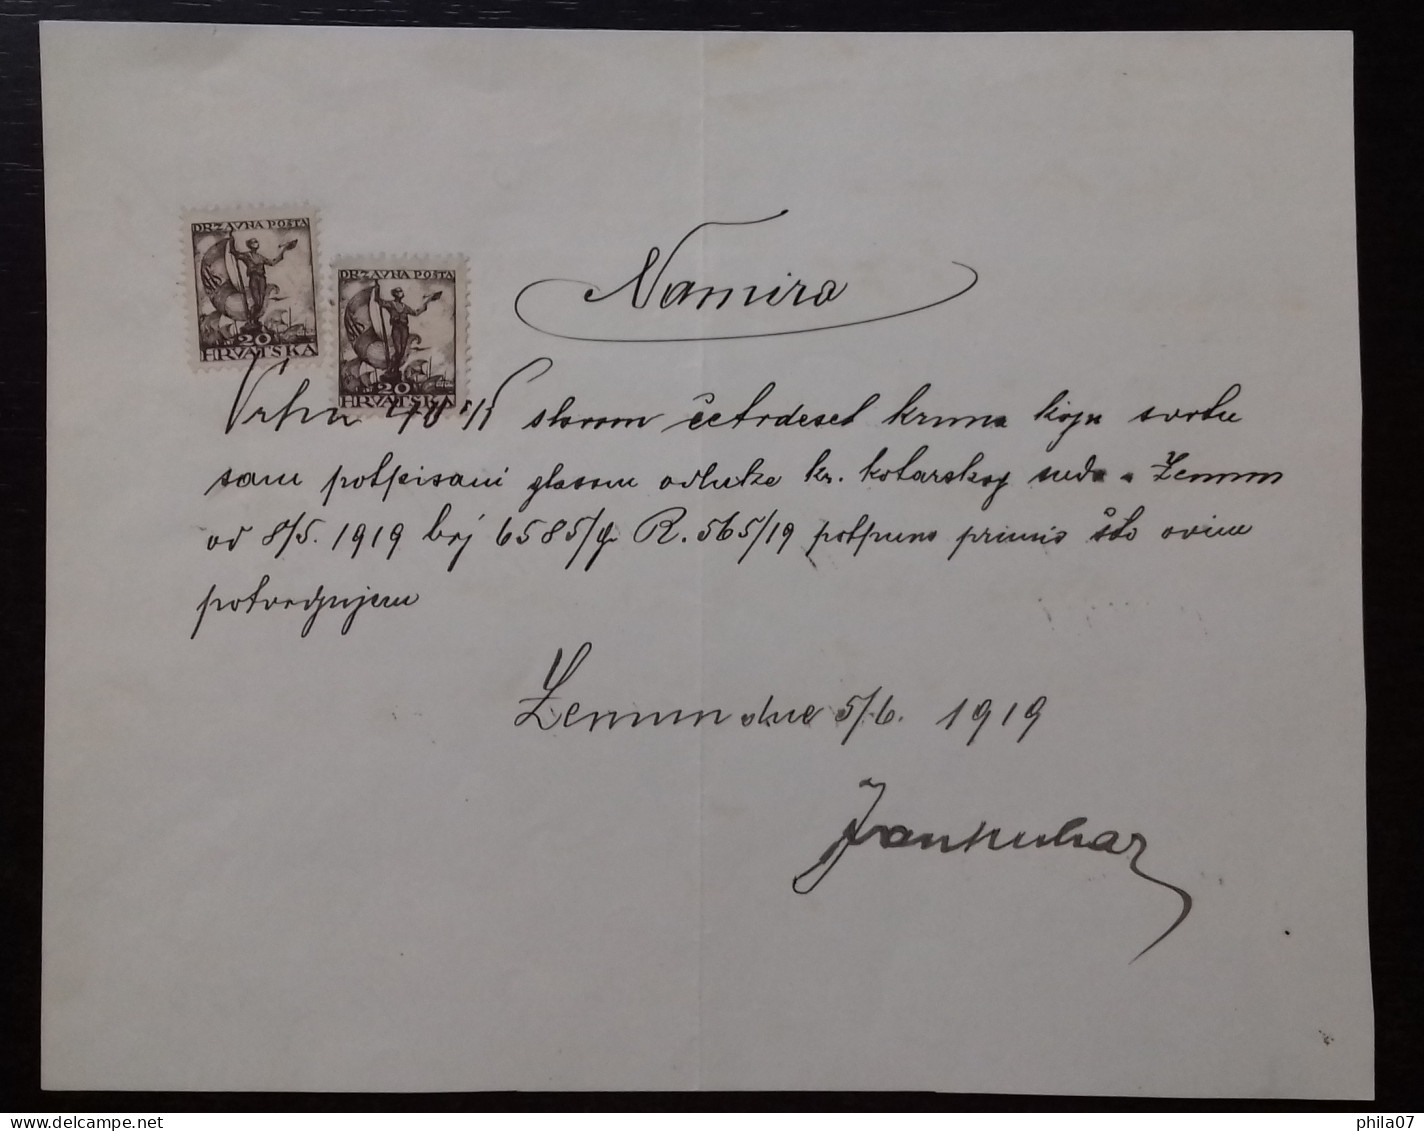 DRZAVNA POŠTA
20
HRVATSKA
DRZAVNA POŠTA
20
HRVATSKA
Namira
Vrhu slovom četrdeset kruna koju svotu
sam potpisani glasom odluke kr. kotarskog suda u Zemun
od 8/5. 1919 broj 6585/g R. 565/19 potpuno primio što ovime
potvrdjujem
Zemun dne 5/6. 1919
phila07